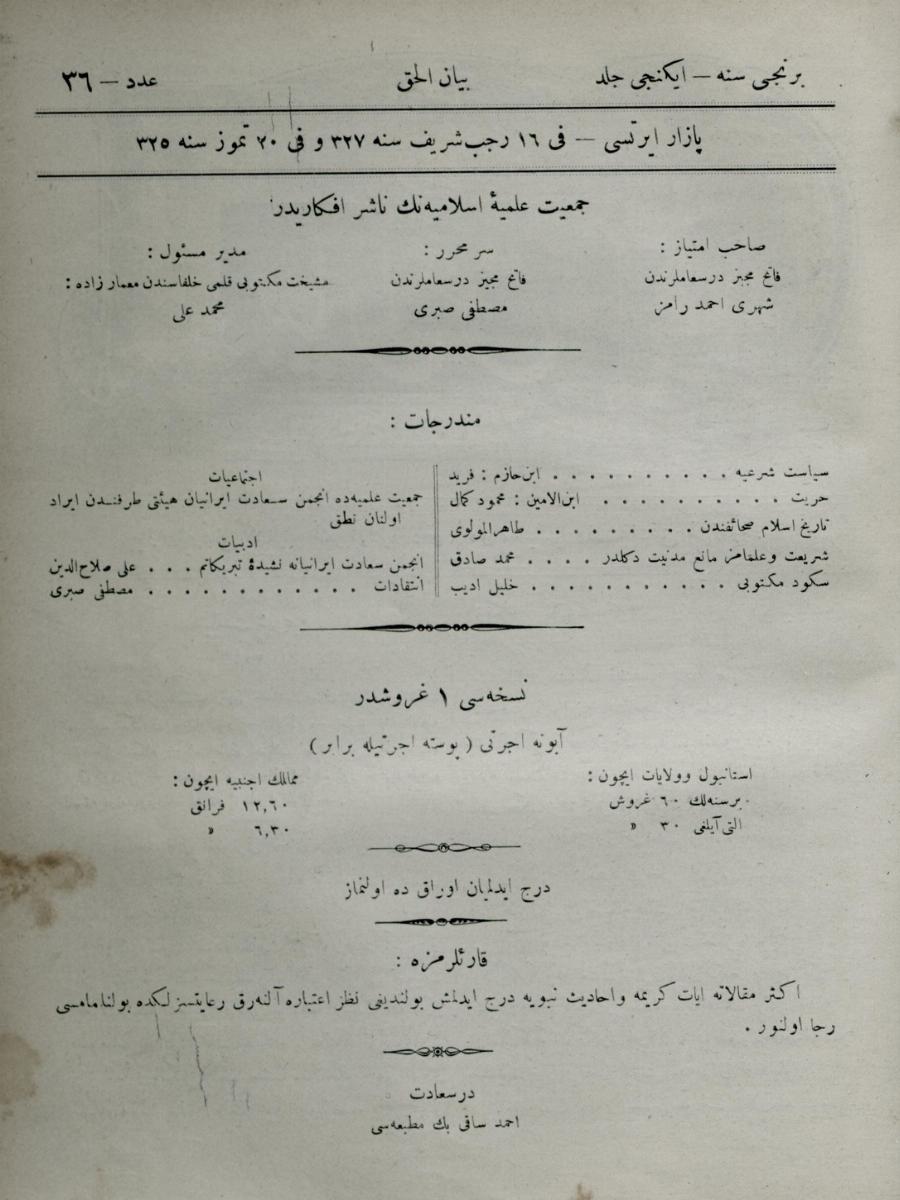 برنجی سنه — ایکنجی جلد
بیان الحق
عدد — ٣٦
پازار ایرتسی — فی ١٦ رجب شریف سنه ٣٢٧ و فی ٢٠ تموز سنه ٣٢٥
جمعیت علمیهٔ اسلامیه‌نك ناشر افكاریدر
صاحب امتیاز :
فاتح مجیز درسعاملرندن
شهری احمد رامز
سر محرر :
فاتح مجیز درسعاملرندن
مصطفی صبری
مدیر مسئول :
مشیخت مكتوبی قلمی خلفاسندن معمار زاده :
محمد علی
مندرجات :
سیاست شرعیه . . . . . . . . . . . ابن حازم : فرید
حریت . . . . . . . . . . ابن‌الامین : محمود كمال
تاریخ اسلام صحائفندن . . . . . . . . . طاهر المولوی
شریعت و علمامز مانع مدنیت دكلدر . . . . محمد صادق
سكود مكتوبی . . . . . . . . . . . خلیل ادیب
اجتماعیات
جمعیت علمیه‌ده انجمن سعادت ایرانیان هیئتی طرفندن ایراد
اولنان نطق
ادبیات
انجمن سعادت ایرانیانه نشیدهٔ تبریكاتم . . . علی صلاح‌الدین
انتقادات . . . . . . . . . . . . مصطفی صبری
نسخه‌سی ١ غروشدر
آبونه اجرتی ( پوسته اجرتیله برابر )
استانبول و ولایات ایچون :
برسنه‌لك ٦٠ غروش
التی آیلغی ٣٠ »
ممالك اجنبیه ایچون :
١٢,٦٠ فرانق
٦,٣٠ »
درج ایدلمیان اوراق ده اولنماز
قارئلرمزه :
اكثر مقالاته ایات كریمه و احادیث نبویه درج ایدلمش بولندیغی نظر اعتباره آلنه‌رق رعایتسزلكده بولنامامسی
رجا اولنور .
درسعادت
احمد ساقی بك مطبعه‌سی